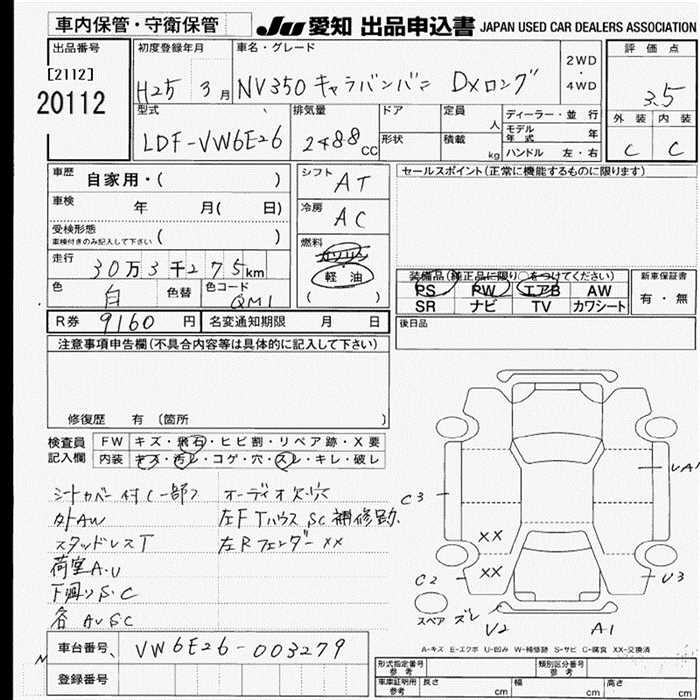 車内保管・守衛保管
JU 愛知 出品申込書 JAPAN USED CAR DEALERS ASSOCIATION
出品番号
[2112]
20112
初度登録年月
H25 3月
車名・グレード
NV350 キャラバンバン DXロング
2WD
・
4WD
評価点
3.5
外装 内装
C C
型式
LDF-VW6E26
排気量
2488 CC
ドア
形状
定員
人
積載
kg
ディーラー・並行
モデル年式 年
ハンドル 左・右
車歴
自家用・( )
車検
年 月( 日)
受検形態
車検付きのみ記入して下さい ( )
走行
30万3千275km
色
白
色替
色コード
QM1
シフト
AT
冷房
AC
燃料
ガソリン
軽油
( )
セールスポイント(正常に機能するものに限ります)
装備品(純正品に限り○をつけてください)
PS PW エアB AW
SR ナビ TV カワシート
新車保証書
有・無
R券 9160 円
名変通知期限 月 日
後日品
注意事項申告欄(不具合内容等は具体的に記入して下さい)
修復歴 有 〔箇所 〕
検査員
記入欄
FW キズ・飛石・ヒビ割・リペア跡・X要
内装 キズ・汚レ・コゲ・穴・スレ・キレ・破レ
シートカバー付(一部) オーディオ欠・穴
外AW 左F Tハウス SC 補修跡
スタッドレスT 左Rフェンダー XX
荷室A.U
下廻りS.C
各 AUSC
C3
UA1
XX
XX
C2
U3
スペア ズレ
U2
A1
A-キズ E-エクボ U-凹み W-補修跡 S-サビ C-腐食 XX-交換済
車台番号 VW6E26-003279
登録番号
形式指定番号
参考
類別区分番号
参考
車庫証明用
参考
長さ cm
幅 cm
高さ cm